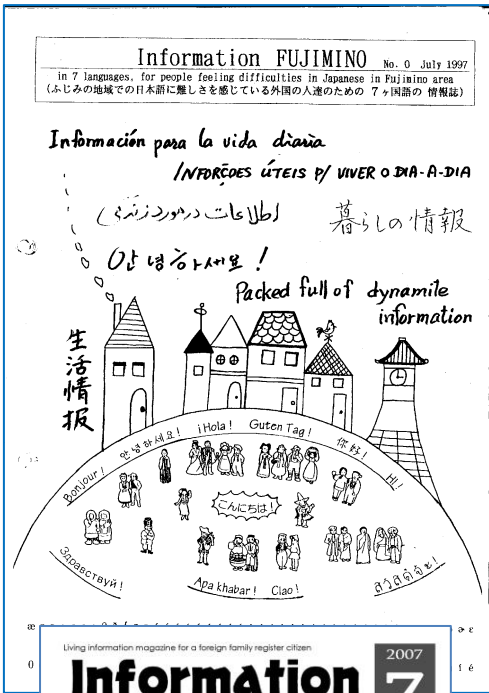 Information FUJIMINO No. 0 July 1997
in 7 languages, for people feeling difficulties in Japanese in Fujimino area
(ふじみの地域での日本語に難しさを感じている外国の人達のための 7ヶ国語の 情報誌)
Información para la vida diaria
INFORÇOES ÚTEIS P/ VIVER O DIA-A-DIA
اطلاعات در مورد زندگی
暮らしの情報
안녕하세요!
Packed full of dynamite
information
生活情报
Bonjour! 안녕하세요! ¡Hola! Guten Tag! 你好! Hi!
こんにちは!
Здравствуй! Apa khabar! Ciao! สวัสดีค่ะ!
Living information magazine for a foreign family register citizen
Information
2007
7